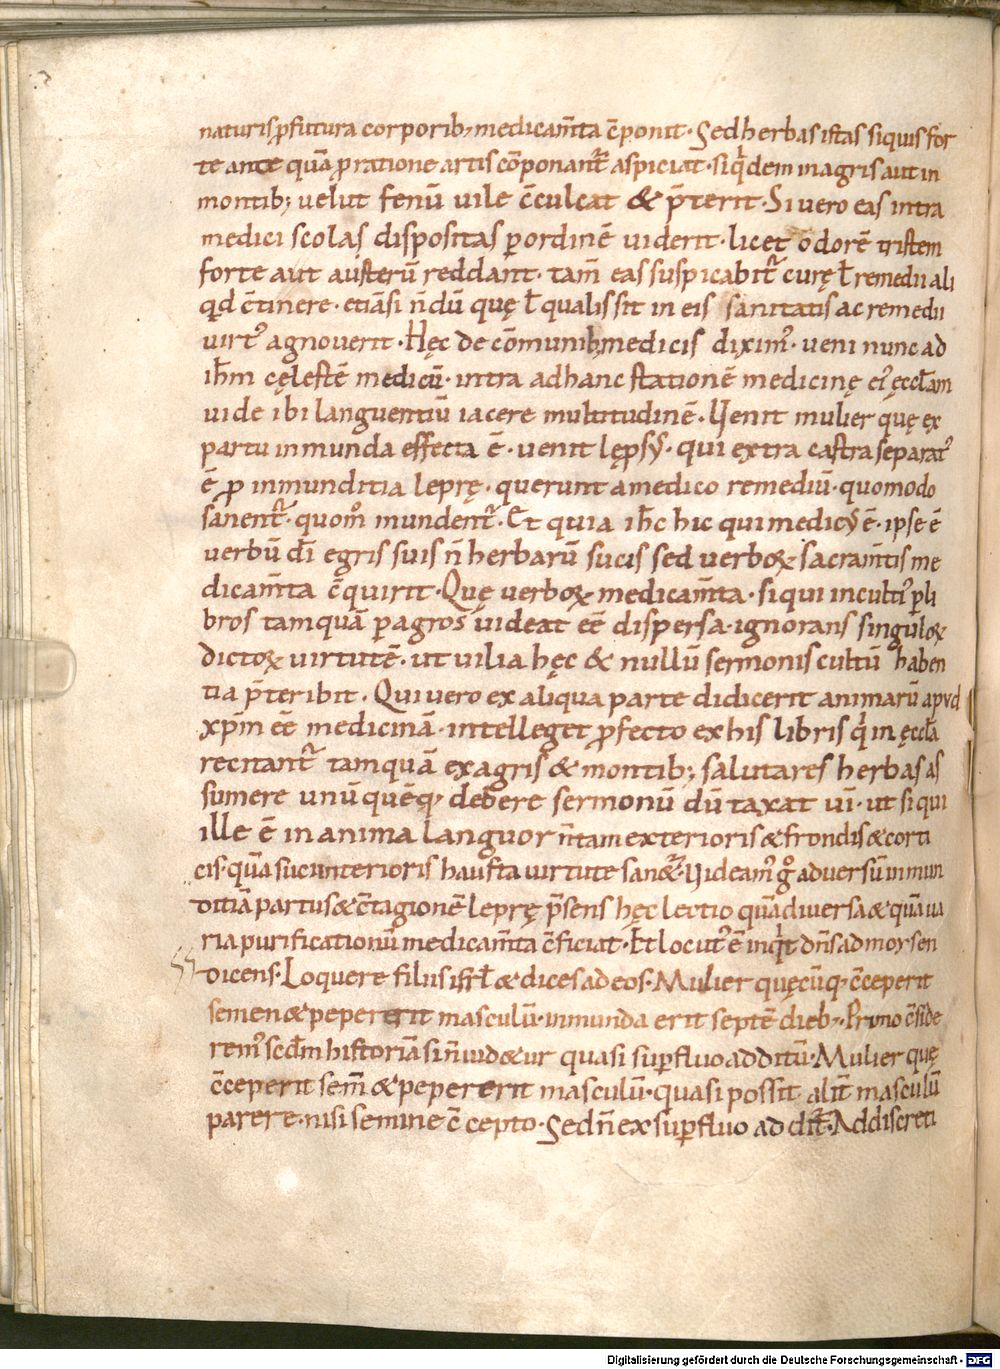 naturis ꝓfutura corporib; medicam̅ta c̅ponit. Sed herbas istas siquis for
te ante quā ꝓratione artis cōponant᷑ aspiciat. siq̇dem in agris aut in
montib; uelut fenū uile c̅culcat & p̅terit. Si uero eas intra
medici scolas dispositas ꝑordinē uiderit. licet odorē tristem
forte aut austerū reddant. tam̅ eas suspicabit᷑ curę ł remedii ali
qd c̅tinere. etiāsi n̅dū quę ł qualis sit in eis sanitatis ac remedii
uirt᷒ agnouerit. Hęc de cōmunib; medicis dixim᷒. ueni nunc ad
ih̅m cęlestē medicū. intra ad hanc stationē medicinę ei᷒ ęccłam
uide ibi languentiū iacere multitudinē. Uenit mulier quę ex
partu inmunda effecta ē. uenit lępsꝰ. qui extra castra separat᷒
ē ꝓ inmunditia leprę. querunt amedico remediū. quomodo
sanent᷑. quom̊ mundent᷑. Et quia ih̅c hic qui medicꝰ ē. ipse ē
uerbū dı̅ egris suis n̅ herbarū sucis sed uerboꝝ sacram̅tis me
dicam̅ta c̅quirit. Quę uerboꝝ medicam̅ta. siqui incult᷒ ꝑ li
bros tamquā ꝑagros uideat eē dispersa. ignorans singuloꝝ
dictoꝝ uirtutē. ut uilia hęc & nullū sermonis cultū haben
tia p̅teribit. Qui uero ex aliqua parte didicerit animarū apud
xpm eē medicinā. intelleget ꝓfecto ex his libris q̇ in ęccła
recitant᷑ tamquā ex agris & montib; salutares herbas as
sumere unū quēq; debere sermonū dū taxat uı̅. ut siqui
ille ē in anima languor n̅tam exterioris & frondis & corti
cis. quā suci interioris hausta uirtute san&᷑. Uideam᷒ gͦ aduersū inmun
ditiā partus & c̅tagionē leprę p̅sens hęc lectio quā diuersa & quā ua
ria purificationū medicam̅ta c̅ficiat. Et locut᷒ ē inq̇t dn̅s ad moysen
dicens. Loquere filiis isrł & dices ad eos. Mulier quęcūq; c̅ceperit
semen & pepererit masculū. inmunda erit septē dieb;. Primo c̅side
rem᷒ scdm̅ historiā si n̅ uid&ur quasi suꝑfluo additū. Mulier quę
c̅ceperit sem̅ & pepererit masculū. quasi possit alit̅ masculū
parere. nisi semine c̅cepto. Sed n̅ ex suꝑfluo addit̅. Ad discreti
Digitalisierung gefördert durch die Deutsche Forschungsgemeinschaft - DFG